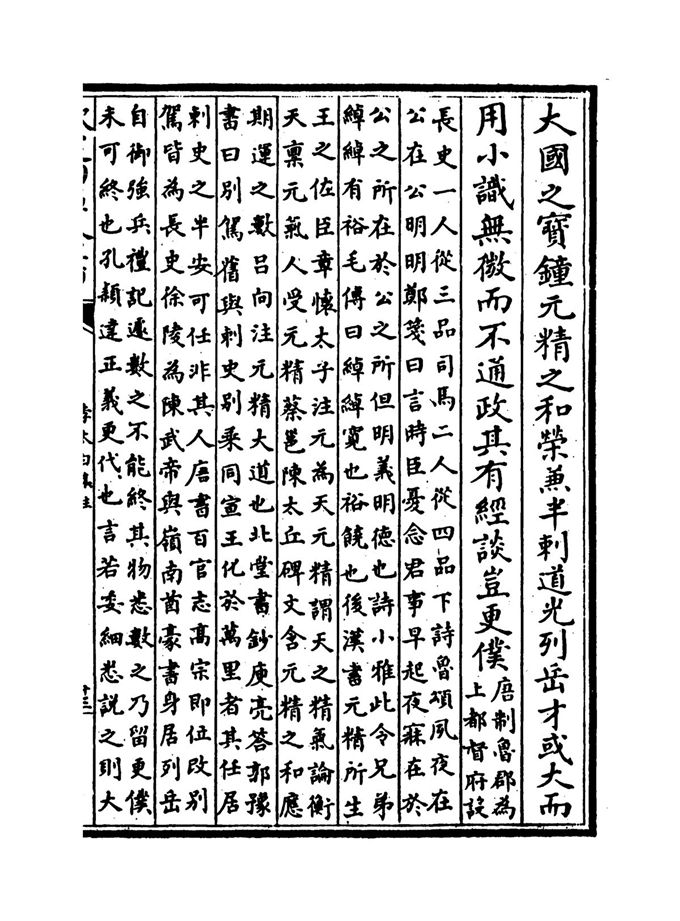 大國之寳鐘元精之和榮兼半刺道光列岳才或大而
用小識無微而不通政其有經談豈更僕
唐制魯郡為
上都督府設
長史一人從三品司馬二人從四品下詩魯頌夙夜在
公在公明明鄭箋曰言時臣憂念君事早起夜寐在於
公之所在於公之所但明義明德也詩小雅此令兄弟
綽綽有裕毛傳曰綽綽寛也裕饒也後漢書元精所生
王之佐臣章懷太子注元為天元精謂天之精氣論衡
天稟元氣人受元精蔡邕陳太丘碑文含元精之和應
期運之數吕向注元精大道也北堂書鈔庾亮答郭豫
書曰别駕舊與刺史别乘同宣王化於萬里者其任居
刺史之半安可任非其人唐書百官志髙宗即位改别
駕皆為長史徐陵為陳武帝與嶺南酋豪書身居列岳
自御强兵禮記遽數之不能終其物悉數之乃留更僕
未可終也孔頴達正義更代也言若委細悉説之則大
李太白集注
十三